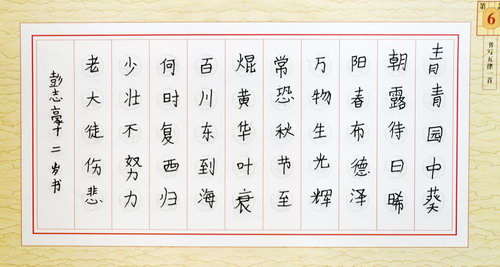 第
6
书写五律一首
青青园中葵
朝露待日晞
阳春布德泽
万物生光辉
常恐秋节至
焜黄华叶衰
百川东到海
何时复西归
少壮不努力
老大徒伤悲
彭志豪十二岁书